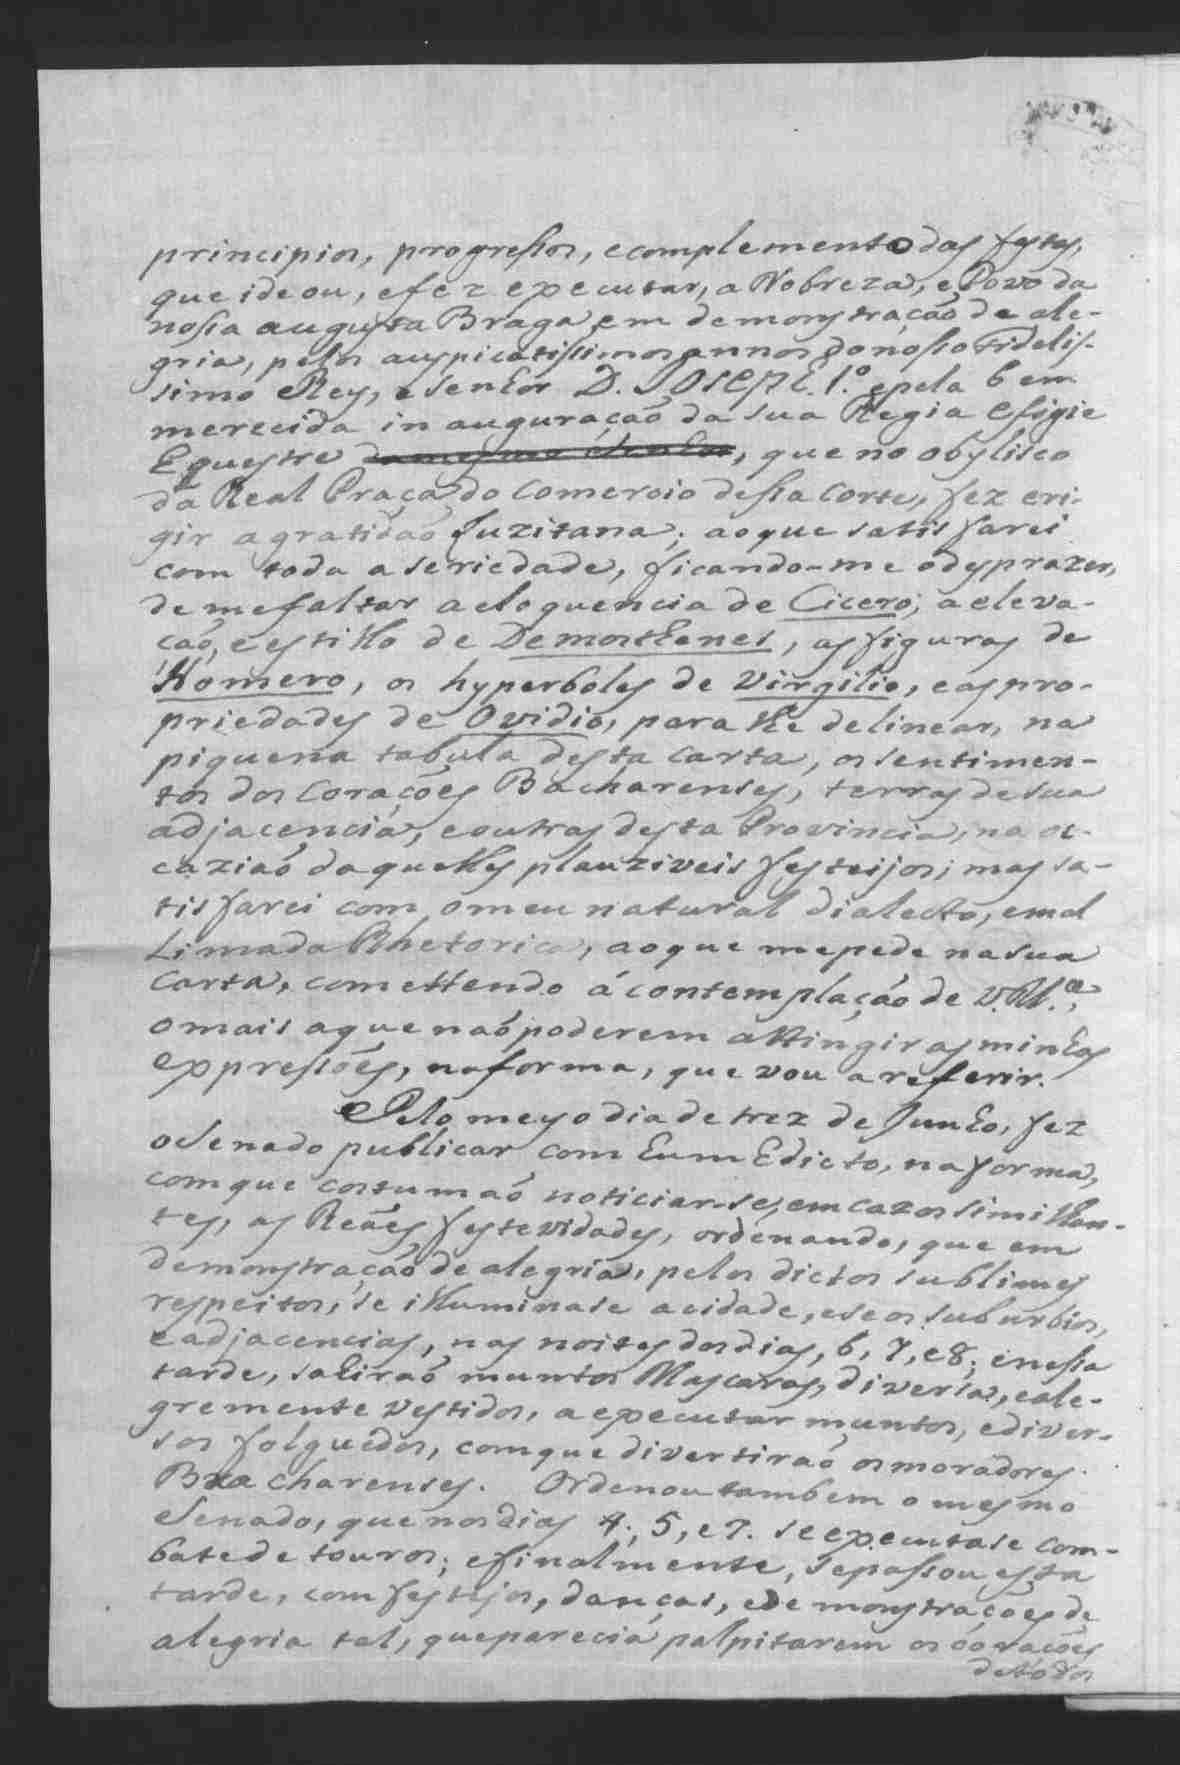 principios, progressos, e complemento das festas,
que ideou, e fez executar, a Nobreza, e Povo da
nossa augusta Braga em demonstraçaõ de ale-
gria, pelos auspicatissimos annos do nosso Fidelis-
simo Rey, e Senhor D. Joseph 1.º e pela bem
merecida inauguraçaõ da sua Regia Efigie
Equestre do mesmo Senhor, que no obylisco
da Real Praça do Comercio dessa Corte, fez eri-
gir a gratidaõ Luzitana; ao que satisfarei
com toda a seriedade, ficando-me o desprazer,
de me faltar a eloquencia de Cicero; a eleva-
çaõ, e estillo de Demosthenes, as figuras de
Homero, os hyperboles de Virgilio, e as pro-
priedades de Ovidio, para lhe delinear, na
piquena tabula desta carta, os sentimen-
tos dos Corações Bacharenses, terras de sua
adjacencia, e outras desta Provincia, na oc-
caziaõ daquelles plauziveis festeijos; mas sa-
tisfarei com o meu natural dialecto, e mal
Limada Rhetorica, ao que me pede na sua
Carta, comettendo á contemplaçaõ de V. M.ce,
o mais a que naõ poderem attingir as minhas
expressões, na forma, que vou a referir.
Pelo meyo dia de trez de Junho, fez
o Senado publicar com hum Edicto, na forma,
com que costumaõ noticiar-se, em cazos similhan-
tes, as Reaes festevidades, ordenando, que em
demonstraçaõ de alegria, pelos dictos sublimes
respeitos, se illuminase a cidade, e seos suburbios,
e adjacencias, nas noites dos dias, 6, 7, e 8; e nessa
tarde, sahiraõ muntos Mascaras, diversa, e ale-
gremente vestidos, a executar muntos, e diver-
sos folguedos, com que divertiraõ os moradores
Bracharenses. Ordenou tambem o mesmo
Senado, que nos dias 4, 5, e 7. se executase com-
bate de touros; e finalmente, se passou esta
tarde, com festejos, danças, e demonstrações de
alegria tal, que parecia palpitarem os corações
de todos